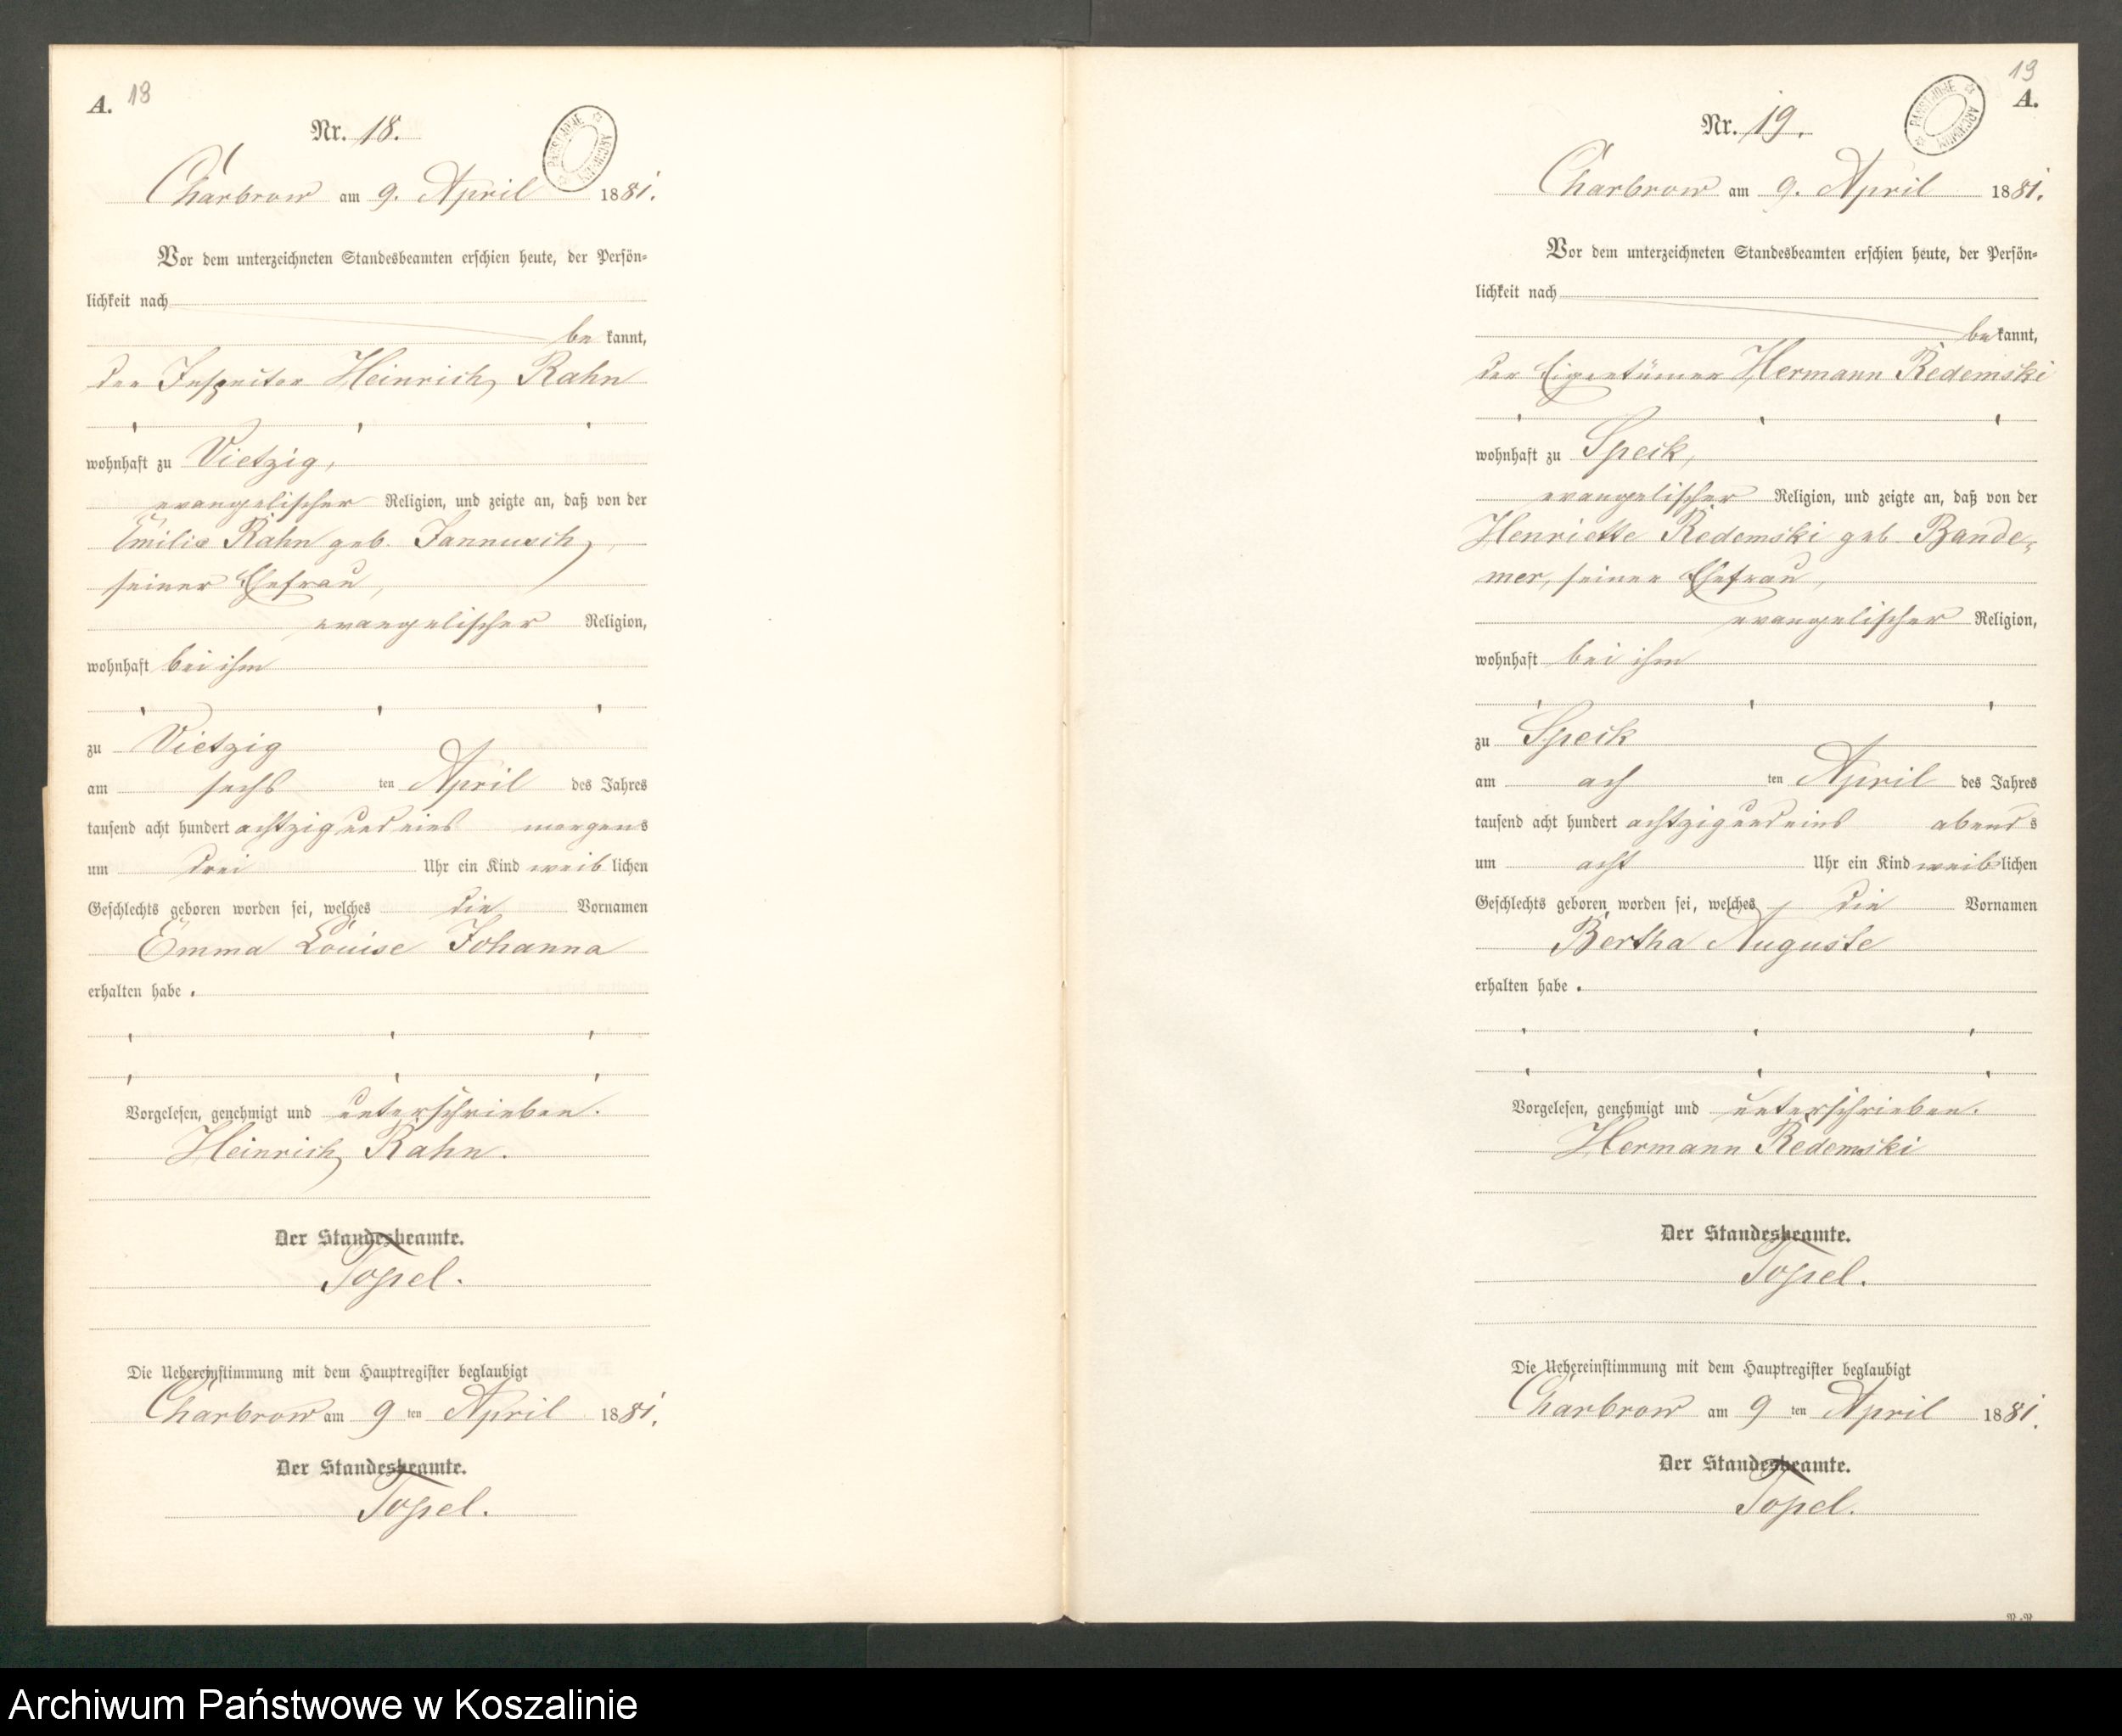 A. 18
Nr. 18.
PAŃSTWOWE ARCHIWUM
Charbrow am 9. April 1881.
Vor dem unterzeichneten Standesbeamten erschien heute, der Persön-
lichkeit nach
bekannt,
der Inspector Heinrich Rahn
wohnhaft zu Vietzig,
evangelischer Religion, und zeigte an, daß von der
Emilie Rahn geb. Jannusch,
seiner Ehefrau,
evangelischer Religion,
wohnhaft bei ihm
zu Vietzig
am sechsten April des Jahres
tausend acht hundert achtzig und eins morgens
um drei Uhr ein Kind weiblichen
Geschlechts geboren worden sei, welches die Vornamen
Emma Louise Johanna
erhalten habe.
Vorgelesen, genehmigt und unterschrieben.
Heinrich Rahn.
Der Standesbeamte.
Topel.
Die Uebereinstimmung mit dem Hauptregister beglaubigt
Charbrow am 9ten April 1881.
Der Standesbeamte.
Topel.
19
A.
Nr. 19.
PAŃSTWOWE ARCHIWUM
Charbrow am 9. April 1881.
Vor dem unterzeichneten Standesbeamten erschien heute, der Persön-
lichkeit nach
bekannt,
der Eigentümer Hermann Redemski
wohnhaft zu Speck,
evangelischer Religion, und zeigte an, daß von der
Henriette Redemski geb. Bande-
mer, seiner Ehefrau,
evangelischer Religion,
wohnhaft bei ihm
zu Speck
am achten April des Jahres
tausend acht hundert achtzig und eins abends
um acht Uhr ein Kind weiblichen
Geschlechts geboren worden sei, welches die Vornamen
Bertha Auguste
erhalten habe.
Vorgelesen, genehmigt und unterschrieben.
Hermann Redemski
Der Standesbeamte.
Topel.
Die Uebereinstimmung mit dem Hauptregister beglaubigt
Charbrow am 9ten April 1881.
Der Standesbeamte.
Topel.
Archiwum Państwowe w Koszalinie